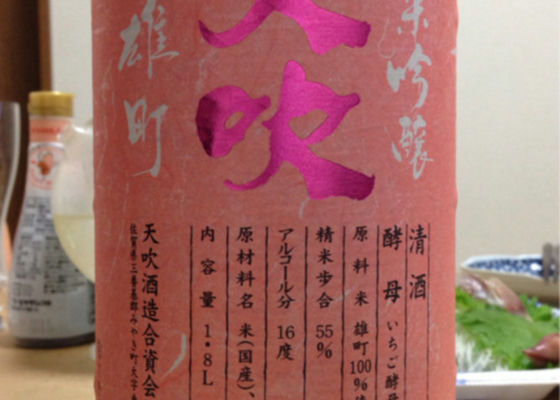 吟醸
天吹
雄町
清酒
酵母 いちご酵母
原料米 雄町100%
精米歩合 55%
アルコール分 16度
原材料名 米(国産)、
内容量 1・8L
天吹酒造合資会
佐賀県三養基郡みやき町大字